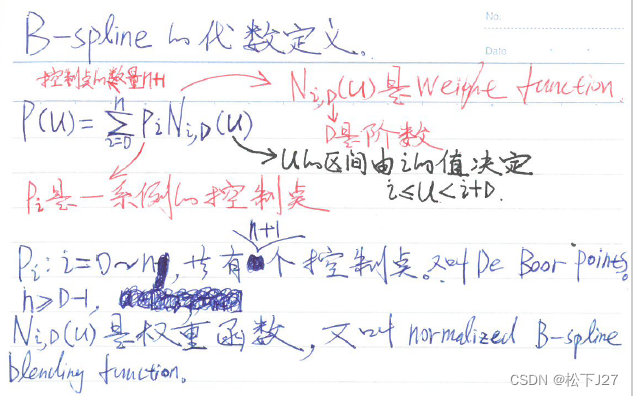 No.
Date
B-spline的代数定义。
控制点的数量n+1
N_{i,D}(u)是Weight function
P(u)=\sum_{i=0}^{n} P_i N_{i,D}(u)
D是阶数
u的区间由i的值决定
i≤u<i+D.
P_i是一系例的控制点
n+1
P_i:i=0~n,共有个控制点。又叫De Boor points。
n≥D-1,
N_{i,D}(u)是权重函数,又叫normalized B-spline
blending function。
CSDN @松下J27